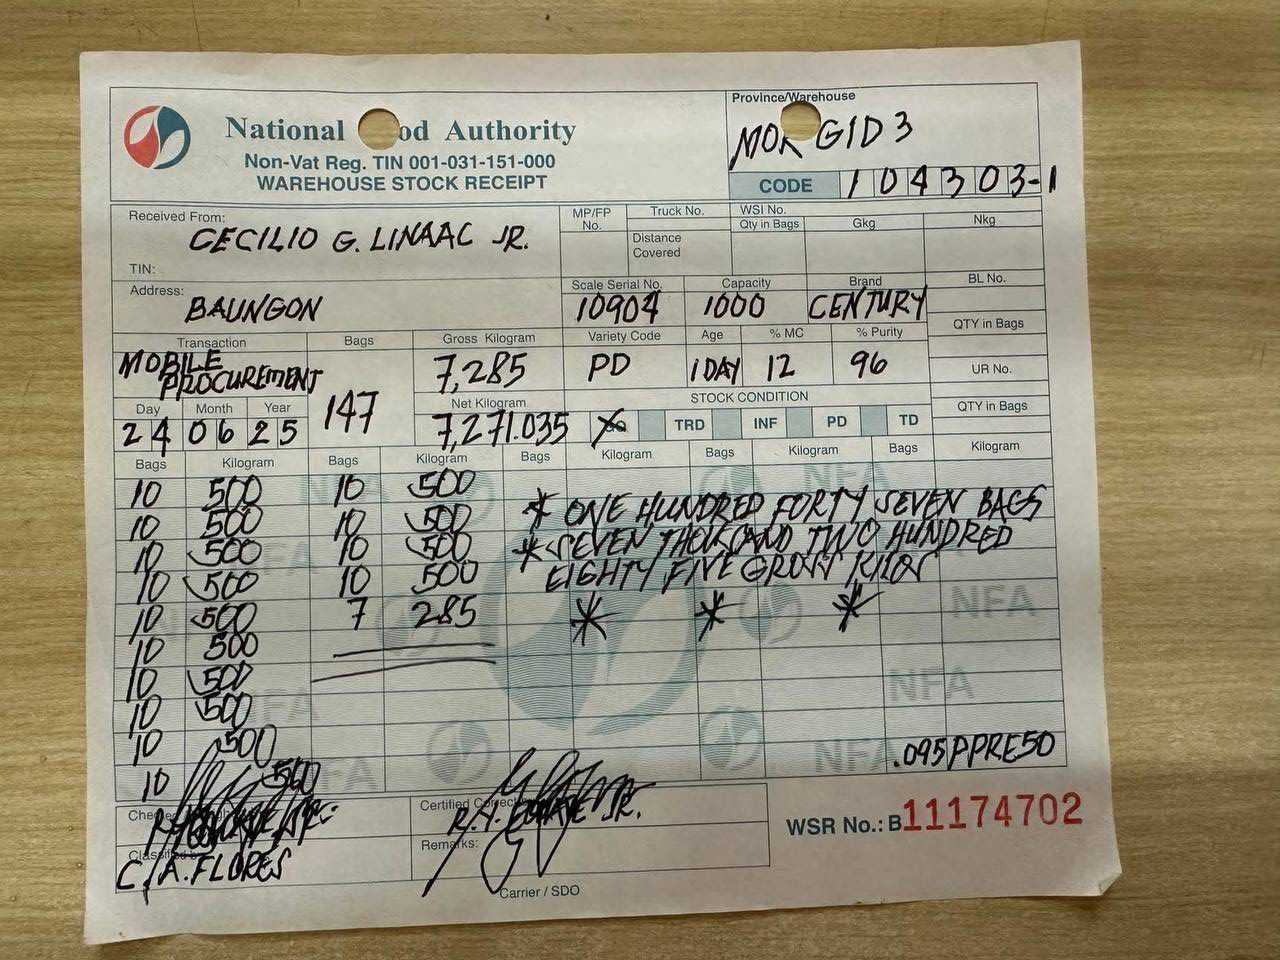 National Food Authority
Non-Vat Reg. TIN 001-031-151-000
WAREHOUSE STOCK RECEIPT
Province/Warehouse
MOR GID 3
CODE 104303-1
Received From:
CECILIO G. LINAAC JR.
TIN:
MP/FP No.
Truck No.
Distance Covered
WSI No.
Qty in Bags
Gkg
Nkg
Address:
BAUNGON
Scale Serial No.
10904
Capacity
1000
Brand
CENTURY
BL No.
QTY in Bags
UR No.
QTY in Bags
Transaction
MOBILE
PROCUREMENT
Bags
147
Gross Kilogram
7,285
Net Kilogram
7,271.035
Variety Code
PD
Age
1 DAY
% MC
12
% Purity
96
Day Month Year
24 06 25
STOCK CONDITION
TRD INF PD TD
Bags Kilogram Bags Kilogram Bags Kilogram Bags Kilogram Bags Kilogram
10 500 10 500
10 500 10 500
10 500 10 500
10 500 10 500
10 500 7 285
10 500
10 500
10 500
10 500
10 500
* ONE HUNDRED FORTY SEVEN BAGS
* SEVEN THOUSAND TWO HUNDRED
EIGHTY FIVE GROSS KILOS
* * *
NFA
NFA
NFA
NFA
NFA
NFA
NFA
.095 PPRE50
C.A. FLORES
Certified Correct
JR.
Remarks:
Carrier / SDO
WSR No.: B11174702